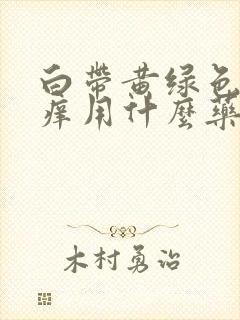 白带黄绿色
痒用什麼藥
木村勇治